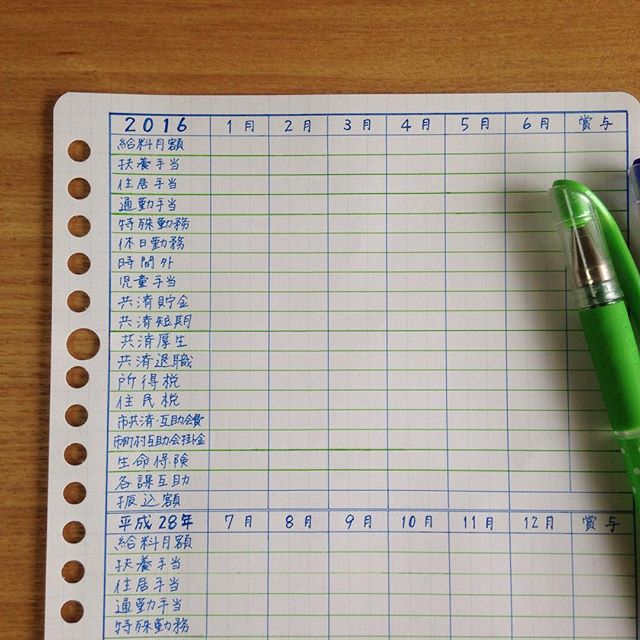 2016 1月 2月 3月 4月 5月 6月 賞与
給料月額
扶養手当
住居手当
通勤手当
特殊勤務
休日勤務
時間外
児童手当
共済貯金
共済短期
共済厚生
共済退職
所得税
住民税
市共済・互助会費
市町村互助会掛金
生命保険
各課互助
振込額
平成28年 7月 8月 9月 10月 11月 12月 賞与
給料月額
扶養手当
住居手当
通勤手当
特殊勤務